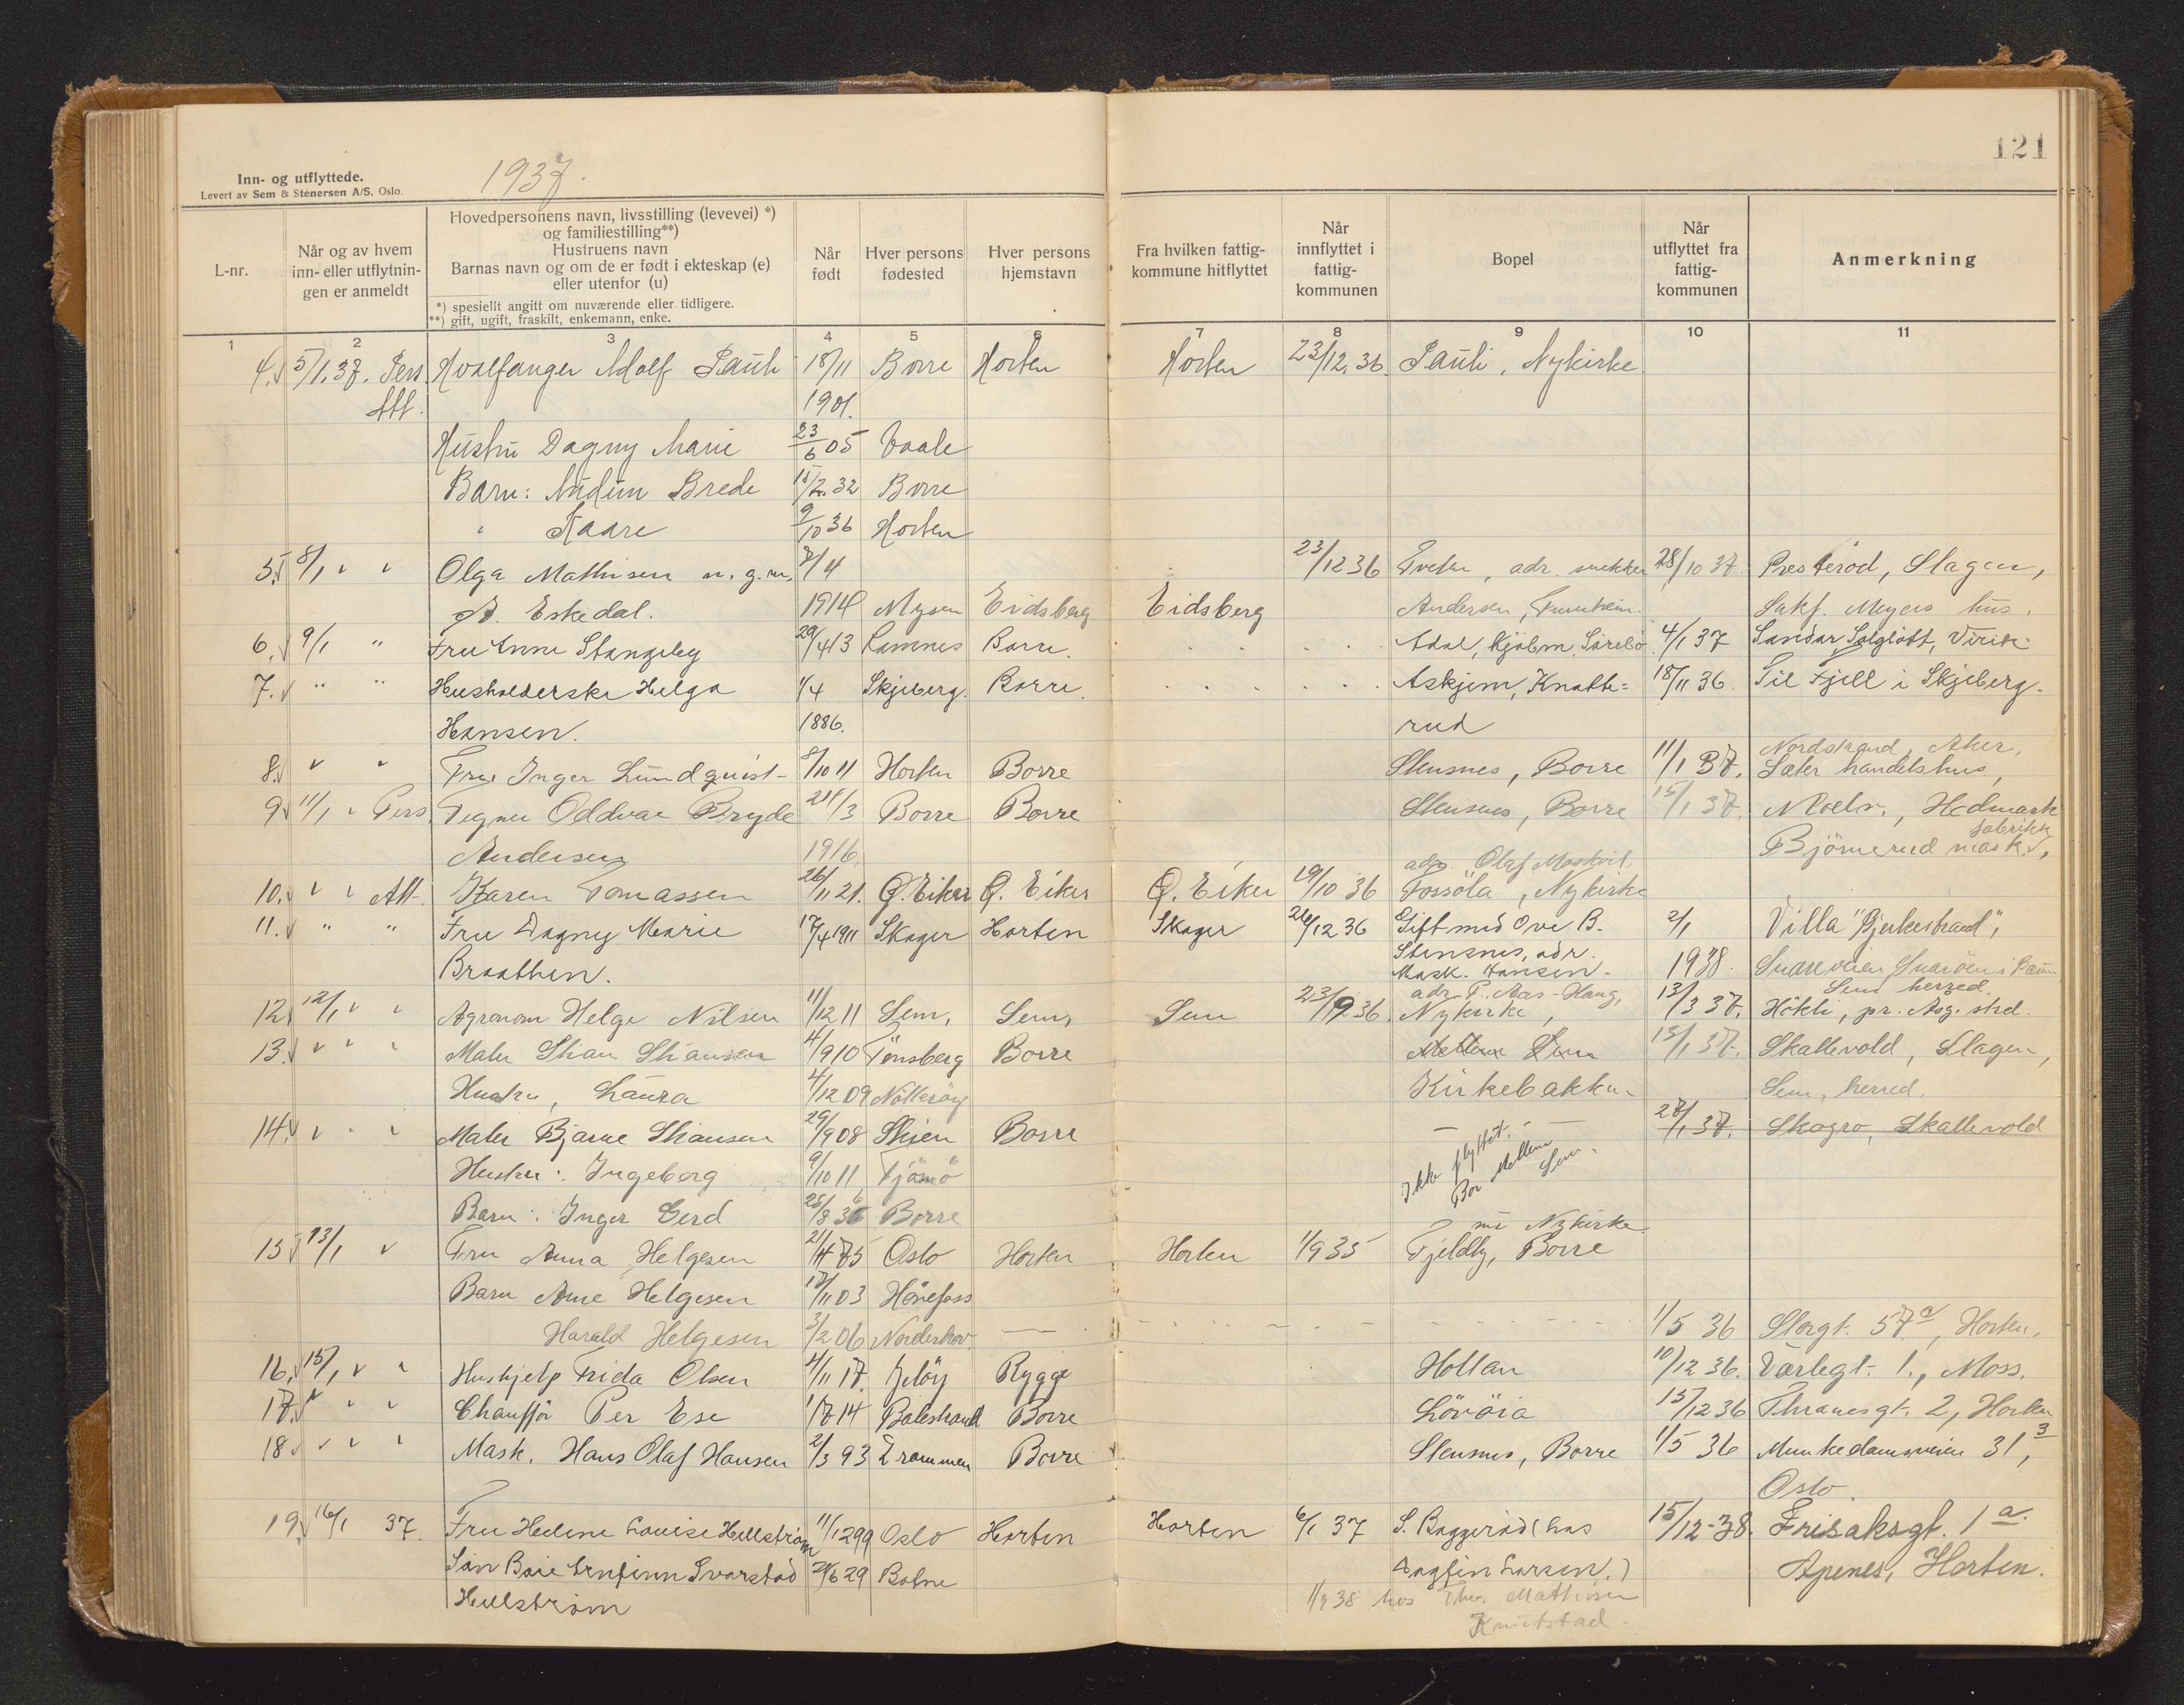 121
Inn- og utflyttede.
Levert av Sem & Stenersen A/S. Oslo.
1937.
L-nr.
Når og av hvem inn- eller utflytnin- gen er anmeldt
Hovedpersonens navn, livsstilling (levevei) *)
og familiestilling**)
Hustruens navn
Barnas navn og om de er født i ekteskap (e)
eller utenfor (u)
*) spesiellt angitt om nuværende eller tidligere.
**) gift, ugift, fraskilt, enkemann, enke.
Når født
Hver persons fødested
Hver persons hjemstavn
Fra hvilken fattig- kommune hitflyttet
Når innflyttet i fattig- kommunen
Bopel
Når utflyttet fra fattig- kommunen
Anmerkning
1 2 3 4 5 6 7 8 9 10 11
4. 5/1.37. Pers. Hvalfanger Adolf Pauli 18/11 Borre Horten Horten 23/12.36. Pauli, Nykirke
Att. 1901.
Hustru Dagny Marie 23/6 05 Vaale
Barn: Audun Brede 15/2.32 Borre
" Kaare 9/10 36 Horten
5. 8/1 " " Olga Mathisen n. g. m. 8/4 23/12 36 Tveten, adr. snekker 28/10 37. Presterød, Slagen,
Eskedal. 1914 Mysen Eidsberg Eidsberg Andersen, Furuheim. Sakf. Meyers hus.
6. 9/1 " Fru Anne Stangeby 29/4 13 Ramnes Borre. Adal, Hjalm. Sørebø 4/1 37 Sandar, Solgløtt, Virik
7. " " Husholderske Helga 1/4 Skjeberg. Borre. Askjem, Knatte= 18/11 36. Til Fjell i Skjeberg.
Hansen. 1886. rud
Nordstrand, Aker,
8. " " Frue Inger Lundquist 8/10 11 Horten Borre Stensnes, Borre 11/1 37. Sæter handelshus,
9. 11/1 " Pers. Tegner Oddvar Bryde 24/3 Borre Borre Stensnes, Borre 15/1 37. Moelv., Hedmark
Andersen 1916. Bjørnerud mask. fabrikk,
adr. Olaf Moskvil.
10. " " Att. Karen Tomassen 26/11 21. Ø. Eiker Ø. Eiker Ø. Eiker 19/10 36 Fossöla, Nykirke
11. " " Fru Dagny Marie 17/4 1911 Skoger Horten Skoger 24/12 36 Gift med Ove B. 2/1 Villa "Bjerkestrand",
Braathen. Stensnes, adr. Mask. Hansen. 1938. Snareveien Snarøen i Bærum
adr. P. Aas-Haug, Sem herred.
12. 12/1 " " Agronom Helge Nilsen 11/12 11 Sem, Sem, Sem 23/9 36. Nykirke, 13/3 37. Hökli, pr. Åsg. strd.
13. " " " Maler Stian Stiansen 4/9 10 Tønsberg Borre Mellem Sem 13/1 37. Skallevold, Slagen,
Hustru, Laura 4/12 09 Nøtterøy Kirkebakken. Sem, herred.
14. " " " Maler Bjarne Stiansen 29/9 08 Skien Borre — " — 27/1 37. Skogro, Skallevold
Hustru: Ingeborg 9/10 11 Tjømø Ikke flyttet. Bor Mellem Sem.
Barn: Inger Gerd 25/8 36 Borre
nu Nykirke
15 13/1 " Fru Anna Helgesen 21/4 75 Oslo Horten Horten 1/9 35 Fjeldly, Borre
Barn Arne Helgesen 17/11 03 Hønefoss
Harald Helgesen 3/2 06 Norderhov. — 1/5 36 Storgt. 57 a, Horten.
16. 15/1 " " Hushjelp Frida Olsen 4/11 17. Jeløy Rygge Holtan 10/12 36. Varlegt. 1., Moss.
17. " " " Chauffør Per Ese 1/7 14 Balestrand Borre Løvøia 15/12 36 Thranesgt. 2, Horten
18 " " " Mask. Hans Olaf Hansen 2/3 93 Drammen Borre Stensnes, Borre 1/5 36 Munkedamsveien 31, 3
Oslo.
19. 16/1 37. Fru Helene Louise Hellström 11/12 99 Oslo Horten Horten 6/1 37 S. Baggerød (hos 15/12-38. Frisaksgt. 1 a.
Søn Boie Ernfinn Svarstad 24/6 29 Botne Dagfin Larsen.) Apenes, Horten.
Hellström 1/2 38 hos Thv. Mathisen
Knutstad.